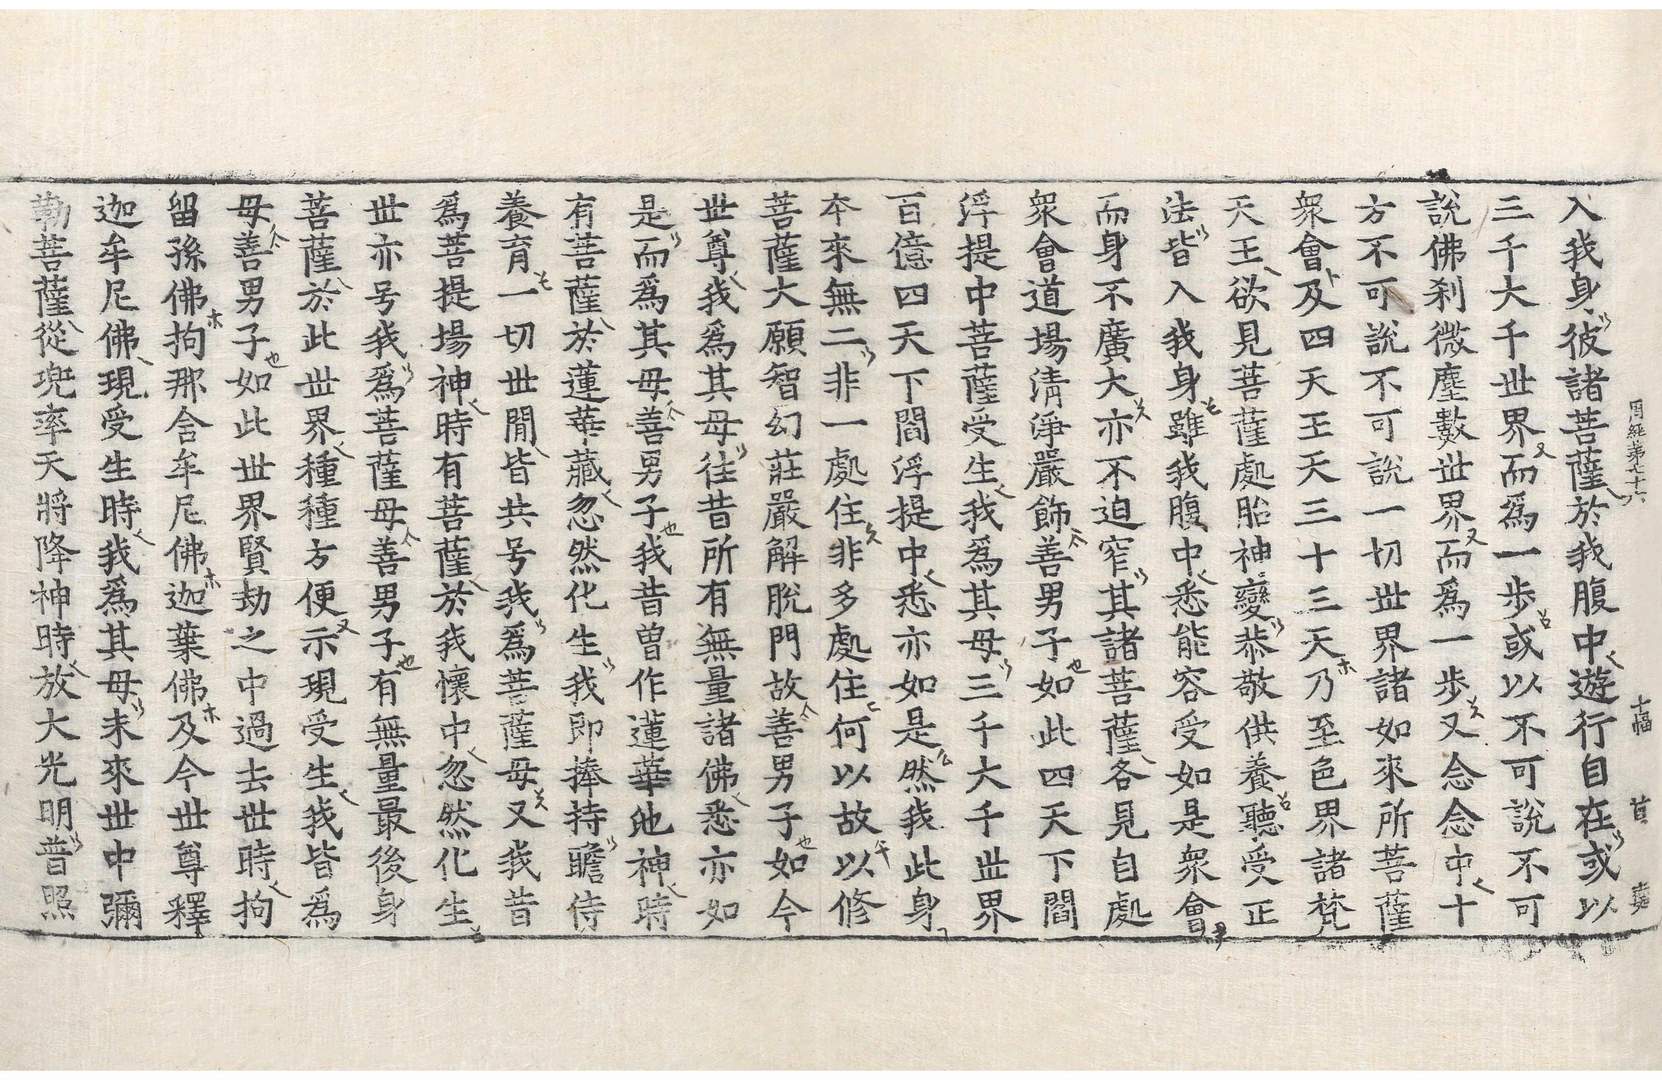 周經第七十六 十幅
入我身彼諸菩薩於我腹中遊行自在或以
三千大千世界而爲一步或以不可說不可
說佛刹微塵數世界而爲一步又念念中十
方不可說不可說一切世界諸如來所菩薩
衆會及四天王天三十三天乃至色界諸梵
天王欲見菩薩處胎神變恭敬供養聽受正
法皆入我身雖我腹中悉能容受如是衆會
而身不廣大亦不迫窄其諸菩薩各見自處
衆會道場清淨嚴飾善男子如此四天下閻
浮提中菩薩受生我爲其母三千大千世界
百億四天下閻浮提中悉亦如是然我此身
本來無二非一處住非多處住何以故以修
菩薩大願智幻莊嚴解脫門故善男子如今
世尊我爲其母往昔所有無量諸佛悉亦如
是而爲其母善男子我昔曾作蓮華池神時
有菩薩於蓮華藏忽然化生我即捧持瞻侍
養育一切世閒皆共号我爲菩薩母又我昔
爲菩提場神時有菩薩於我懷中忽然化生
世亦号我爲菩薩母善男子有無量最後身
菩薩於此世界種種方便示現受生我皆爲
母善男子如此世界賢劫之中過去世時拘
留孫佛拘那含牟尼佛迦葉佛及今世尊釋
迦牟尼佛現受生時我爲其母未來世中彌
勒菩薩從兜率天將降神時放大光明普照